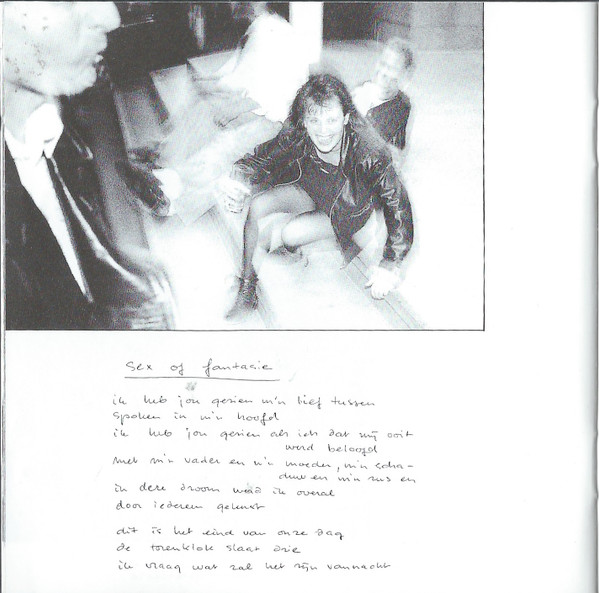 Sex of fantasie
ik heb jou gezien m'n lief tussen
spoken in m'n hoofd
ik heb jou gezien als iets dat mij ooit
werd beloofd
met m'n vader en m'n moeder, m'n scha-
duw en m'n zus en
in deze droom werd ik overal
door iedereen gekust
dit is het eind van onze dag
de torenklok slaat drie
ik vraag wat zal het zijn vannacht